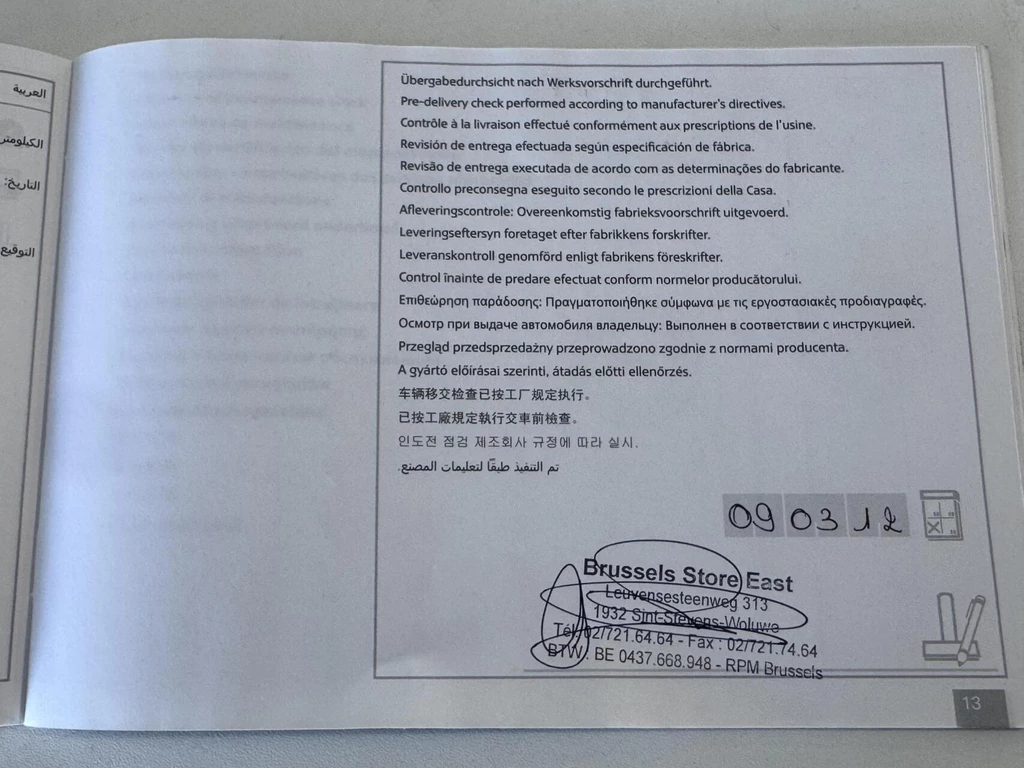 العربية
التاريخ:
التوقيع
Übergabedurchsicht nach Werksvorschrift durchgeführt.
Pre-delivery check performed according to manufacturer's directives.
Contrôle à la livraison effectué conformément aux prescriptions de l'usine.
Revisión de entrega efectuada según especificación de fábrica.
Revisão de entrega executada de acordo com as determinações do fabricante.
Controllo preconsegna eseguito secondo le prescrizioni della Casa.
Afleveringscontrole: Overeenkomstig fabrieksvoorschrift uitgevoerd.
Leveringseftersyn foretaget efter fabrikkens forskrifter.
Leveranskontroll genomförd enligt fabrikens föreskrifter.
Control înainte de predare efectuat conform normelor producătorului.
Επιθεώρηση παράδοσης: Πραγματοποιήθηκε σύμφωνα με τις εργοστασιακές προδιαγραφές.
Осмотр при выдаче автомобиля владельцу: Выполнен в соответствии с инструкцией.
Przegląd przedsprzedażny przeprowadzono zgodnie z normami producenta.
A gyártó előírásai szerinti, átadás előtti ellenőrzés.
车辆移交检查已按工厂规定执行。
已按工廠規定執行交車前檢查。
인도전 점검 제조회사 규정에 따라 실시.
تم التنفيذ طبقًا لتعليمات المصنع.
09 03 12
Brussels Store East
Leuvensesteenweg 313
1932 Sint-Stevens-Woluwe
Tél. 02/721.64.64 - Fax : 02/721.74.64
BTW. BE 0437.668.948 - RPM Brussels
13